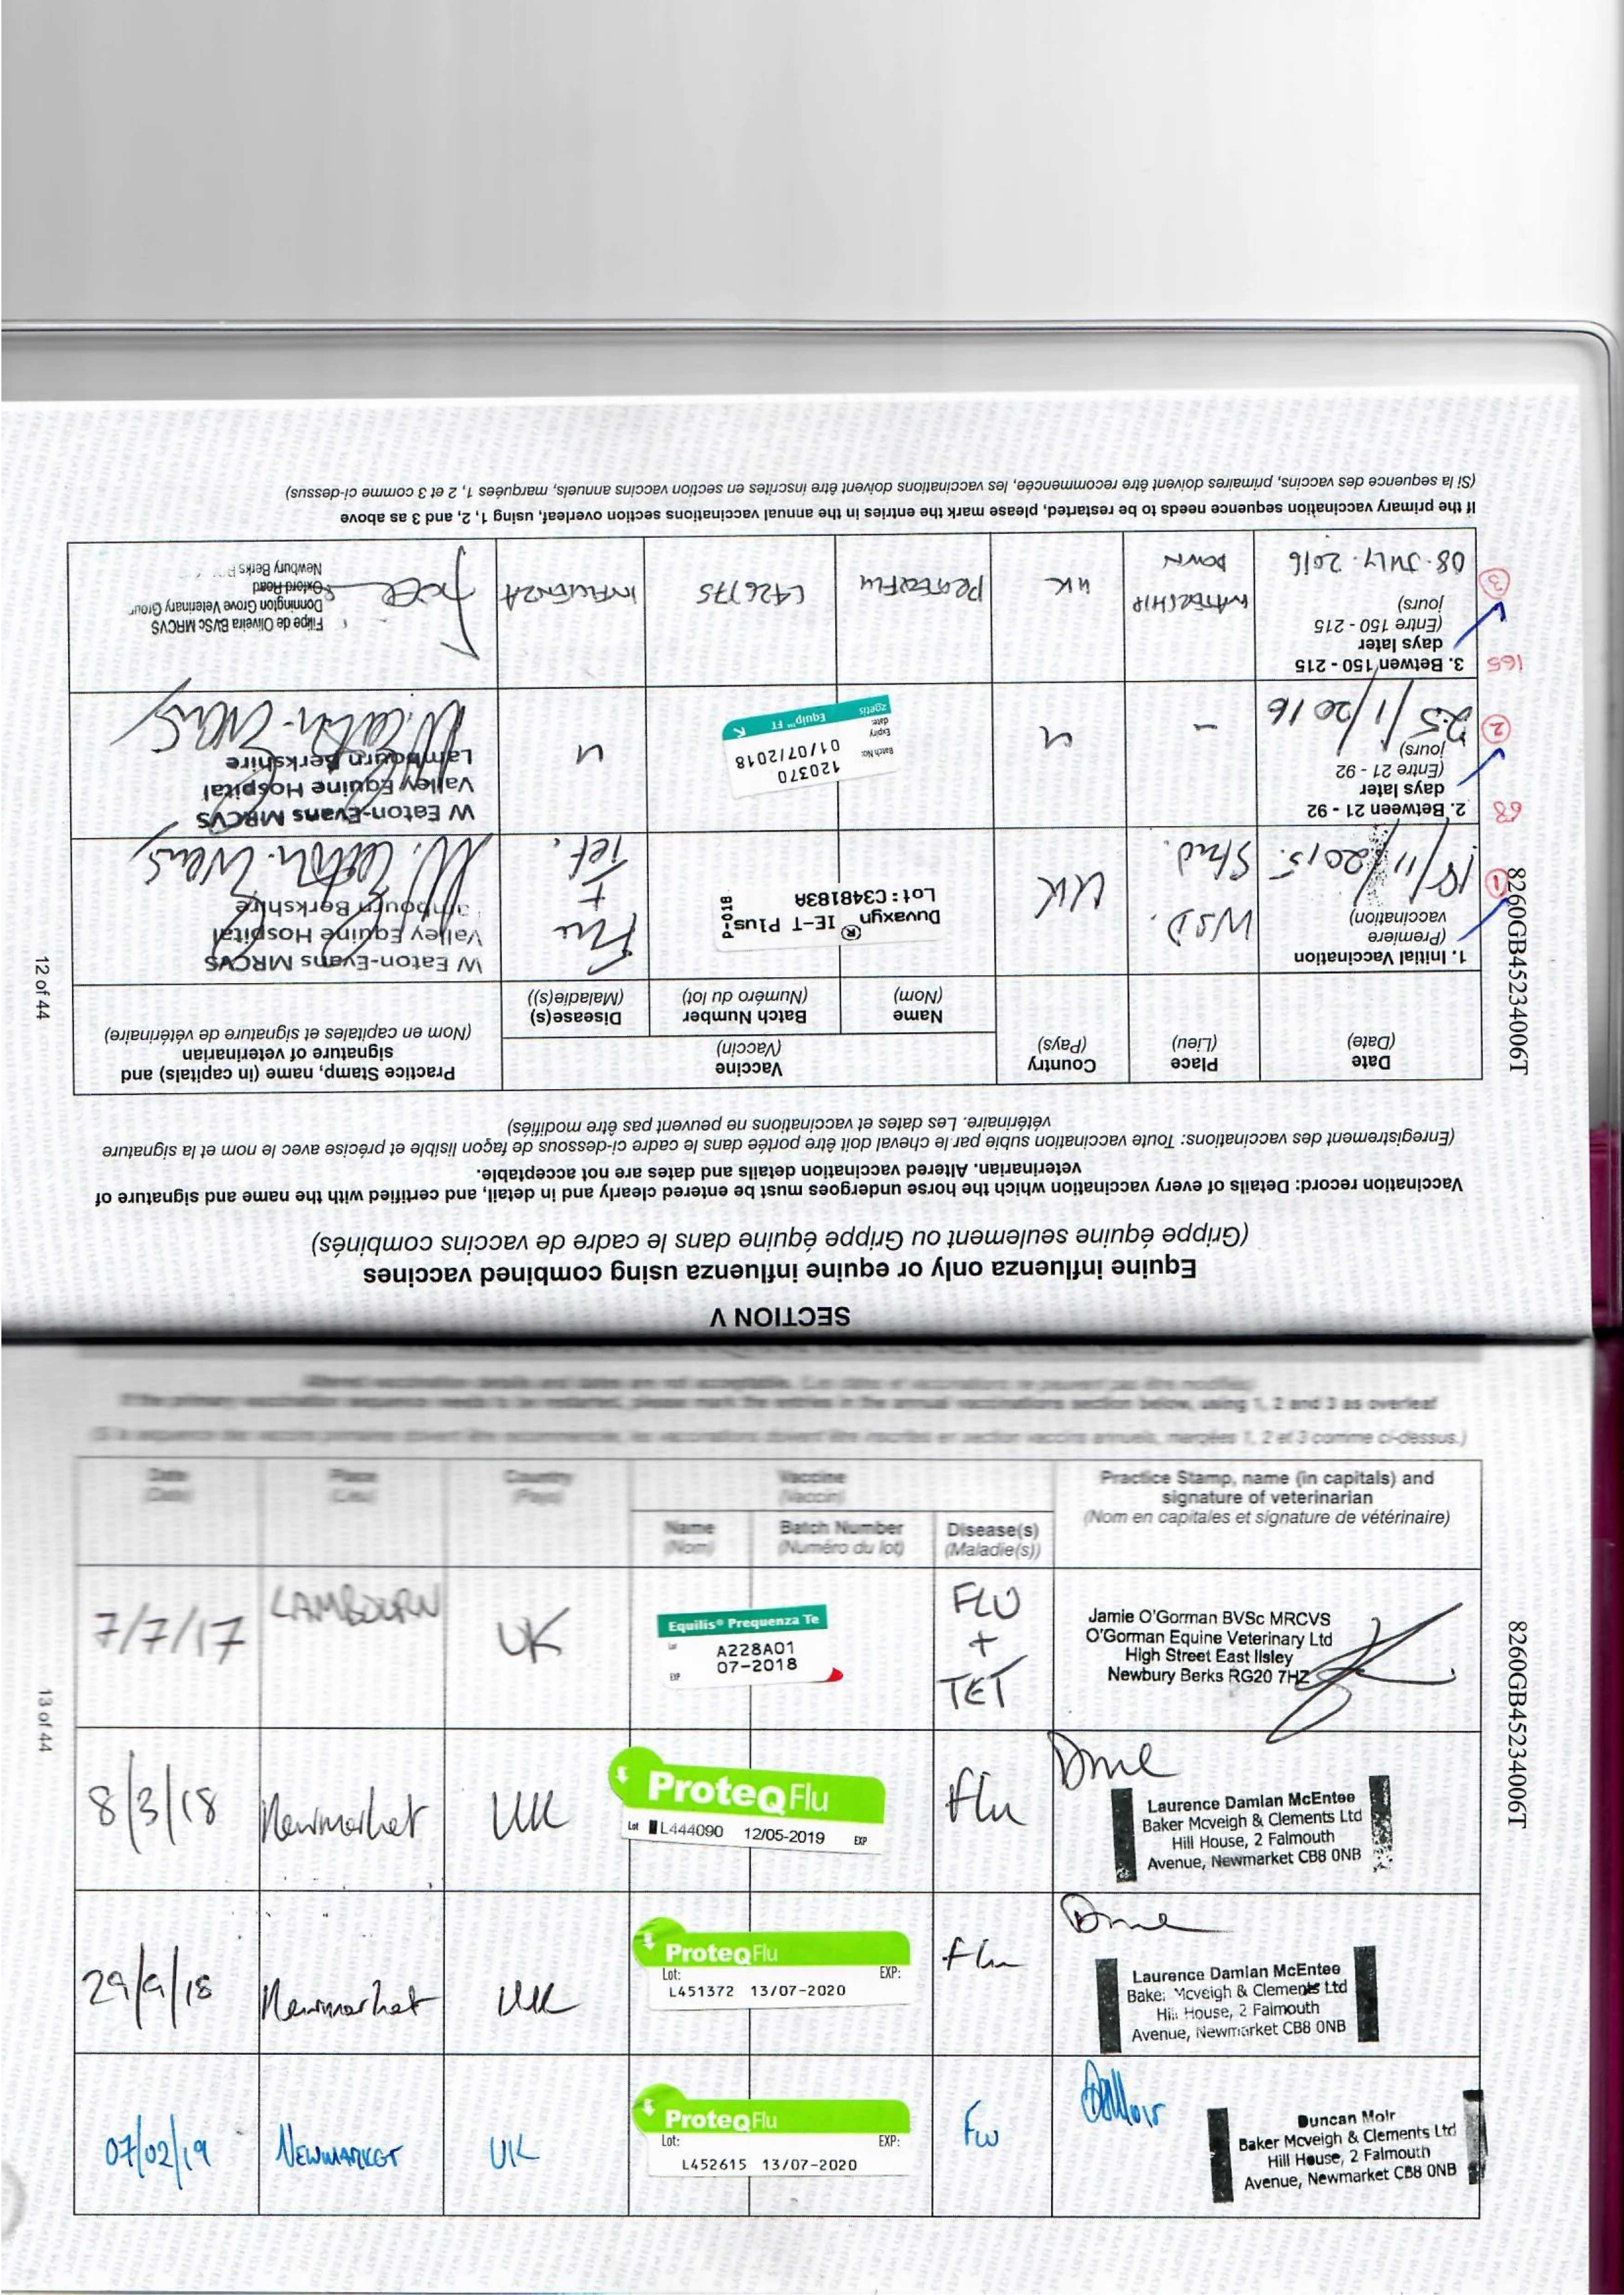 SECTION V
Equine influenza only or equine influenza using combined vaccines
(Grippe équine seulement ou Grippe équine dans le cadre de vaccins combinés)
Vaccination record: Details of every vaccination which the horse undergoes must be entered clearly and in detail, and certified with the name and signature of
veterinarian. Altered vaccination details and dates are not acceptable.
(Enregistrement des vaccinations: Toute vaccination subie par le cheval doit être portée dans le cadre ci-dessous de façon lisible et précise avec le nom et la signature
vétérinaire. Les dates et vaccinations ne peuvent pas être modifiés)
Date
(Date)
Place
(Lieu)
Country
(Pays)
Vaccine
(Vaccin)
Name
(Nom)
Batch Number
(Numéro du lot)
Disease(s)
(Maladie(s))
Practice Stamp, name (in capitals) and
signature of veterinarian
(Nom en capitales et signature de vétérinaire)
1. Initial Vaccination
(Premiere
vaccination)
1
18/11/2015.
WSD.
Stud.
UK
Duvaxyn® IE-T Plus
Lot: C348183A
P-018
Flu
+
Tet.
W Eaton-Evans MRCVS
Valley Equine Hospital
Lambourn Berkshire
W. Eaton-Evans
68
2. Between 21 - 92
days later
(Entre 21 - 92
jours)
2
25/1/2016
-
"
Batch No:
120370
Expiry
date:
01/07/2018
zoetis
Equip™ FT
K
"
W Eaton-Evans MRCVS
Valley Equine Hospital
Lambourn Berkshire
W. Eaton-Evans
165
3. Betwen 150 - 215
days later
(Entre 150 - 215
jours)
3
08.JULY.2016
WATERSHIP
DOWN
UK
PROTEQFLU
L426775
INFLUENZA
Filipe de Oliveira BVSc MRCVS
Donnington Grove Veterinary Group
Oxford Road
Newbury Berks
If the primary vaccination sequence needs to be restarted, please mark the entries in the annual vaccinations section overleaf, using 1, 2, and 3 as above
(Si la sequence des vaccins, primaires doivent être recommencée, les vaccinations doivent être inscrites en section vaccins annuels, marquées 1, 2 et 3 comme ci-dessus)
8260GB45234006T
12 of 44
Altered vaccination details and dates are not acceptable. (Les dates et vaccinations ne peuvent pas être modifiés)
If the primary vaccination sequence needs to be restarted, please mark the entries in the annual vaccinations section below, using 1, 2 and 3 as overleaf
(Si la sequence des vaccins primaires doivent être recommencée, les vaccinations doivent être inscrites en section vaccins annuels, marquées 1, 2 et 3 comme ci-dessus.)
Date
(Date)
Place
(Lieu)
Country
(Pays)
Vaccine
(Vaccin)
Name
(Nom)
Batch Number
(Numéro du lot)
Disease(s)
(Maladie(s))
Practice Stamp, name (in capitals) and
signature of veterinarian
(Nom en capitales et signature de vétérinaire)
7/7/17
LAMBOURN
UK
Equilis® Prequenza Te
Lot
A228A01
EXP
07-2018
FLU
+
TET
Jamie O'Gorman BVSc MRCVS
O'Gorman Equine Veterinary Ltd
High Street East Ilsley
Newbury Berks RG20 7HZ
8/3/18
Newmarket
UK
ProteqFlu
Lot L444090 12/05-2019 EXP
Flu
Laurence Damian McEntee
Baker Mcveigh & Clements Ltd
Hill House, 2 Falmouth
Avenue, Newmarket CB8 0NB
29/9/18
Newmarket
UK
ProteqFlu
Lot: EXP:
L451372 13/07-2020
Flu
Laurence Damian McEntee
Baker Mcveigh & Clements Ltd
Hill House, 2 Falmouth
Avenue, Newmarket CB8 0NB
07/02/19
NEWMARKET
UK
ProteqFlu
Lot: EXP:
L452615 13/07-2020
Flu
Duncan Moir
Baker Mcveigh & Clements Ltd
Hill House, 2 Falmouth
Avenue, Newmarket CB8 0NB
8260GB45234006T
13 of 44